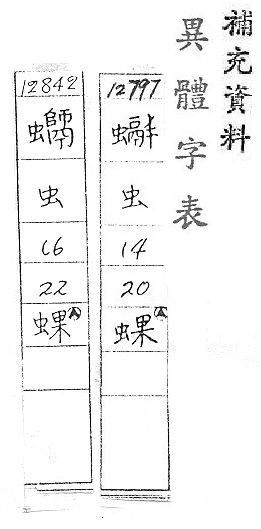 補充資料
異體字表
12797
虫
14
20
蜾
12842
虫
16
22
蜾